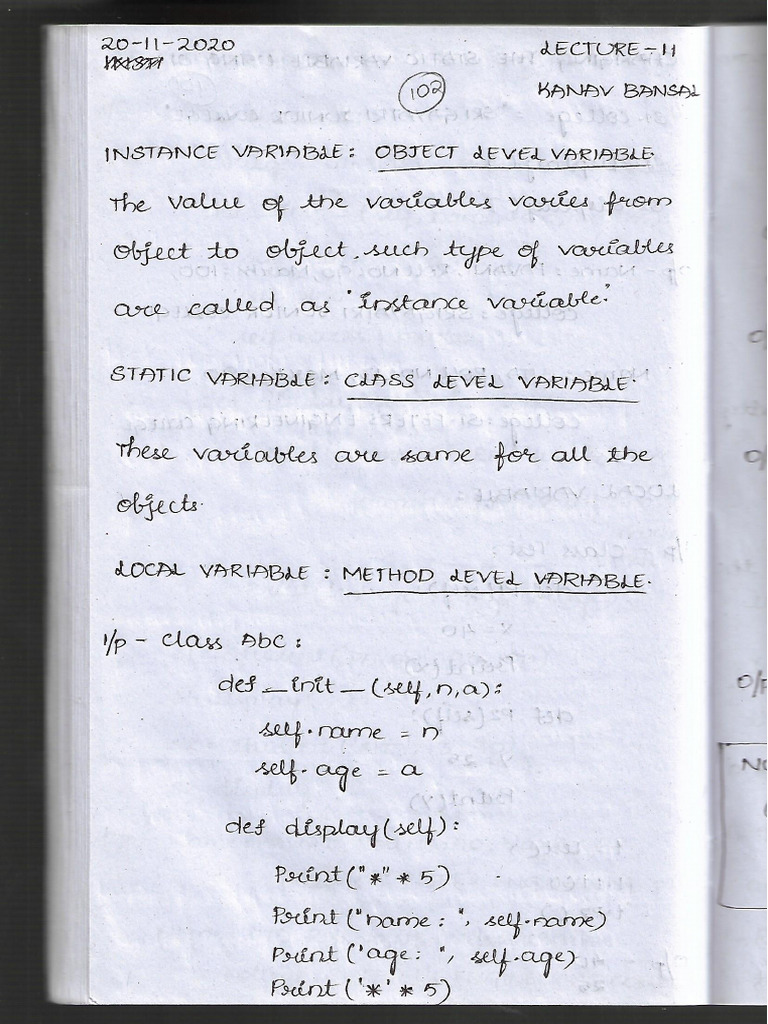 20-11-2020
LECTURE-11
102
KANAV BANSAL
INSTANCE VARIABLE: OBJECT LEVEL VARIABLE.
The value of the variables varies from
object to object, such type of variables
are called as "instance variable".
STATIC VARIABLE: CLASS LEVEL VARIABLE.
These variables are same for all the
objects.
LOCAL VARIABLE: METHOD LEVEL VARIABLE.
I/p - class Abc:
def __init__(self, n, a):
self.name = n
self.age = a
def display(self):
Print("*" * 5)
Print("name: ", self.name)
Print('age: ", self.age)
Print('*' * 5)
O/P
NO